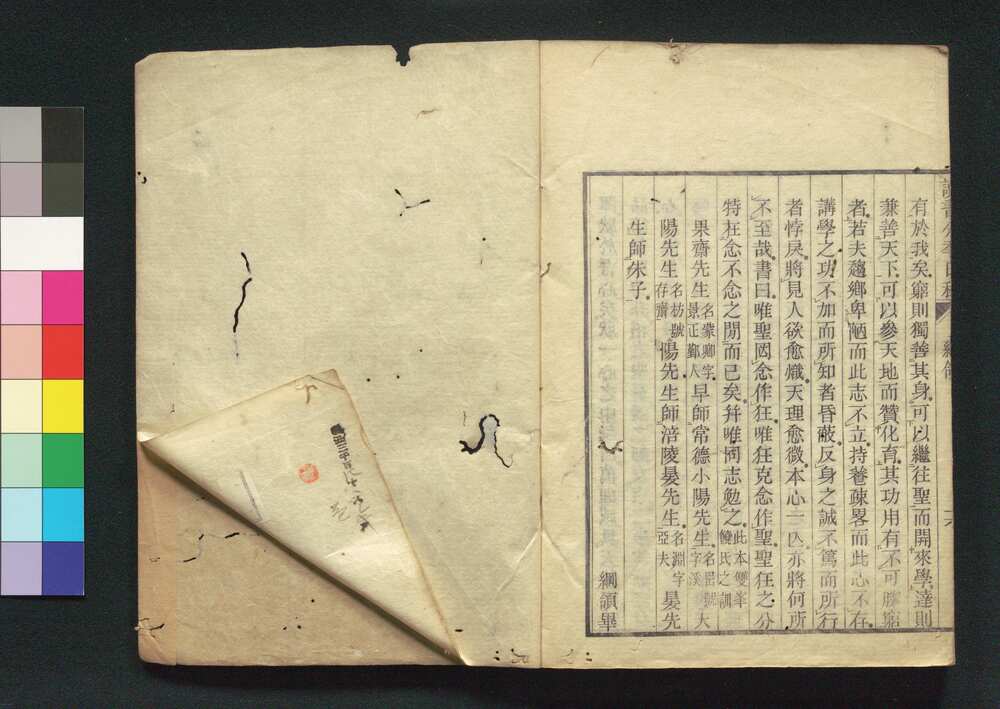 有於我矣窮則獨善其身可以繼往聖而開來學達則
兼善天下可以參天地而贊化育其功用有不可勝窮
者若夫趨鄉卑陋而此志不立持養疎畧而此心不存
講學之功不加而所知者昏蔽反身之誠不篤而所行
者悖戾將見人欲愈熾天理愈微本心一亾亦將何所
不至哉書曰唯聖罔念作狂唯狂克念作聖聖狂之分
特在念不念之閒而已矣幷唯同志勉之 此本雙峯饒氏之訓
果齋先生 名蒙卿字景正鄞人 早師常德小陽先生 名嵒號字溪 大
陽先生 名枋號存齋 陽先生師涪陵晏先生 名淵字亞夫 晏先
生師朱子
綱領畢